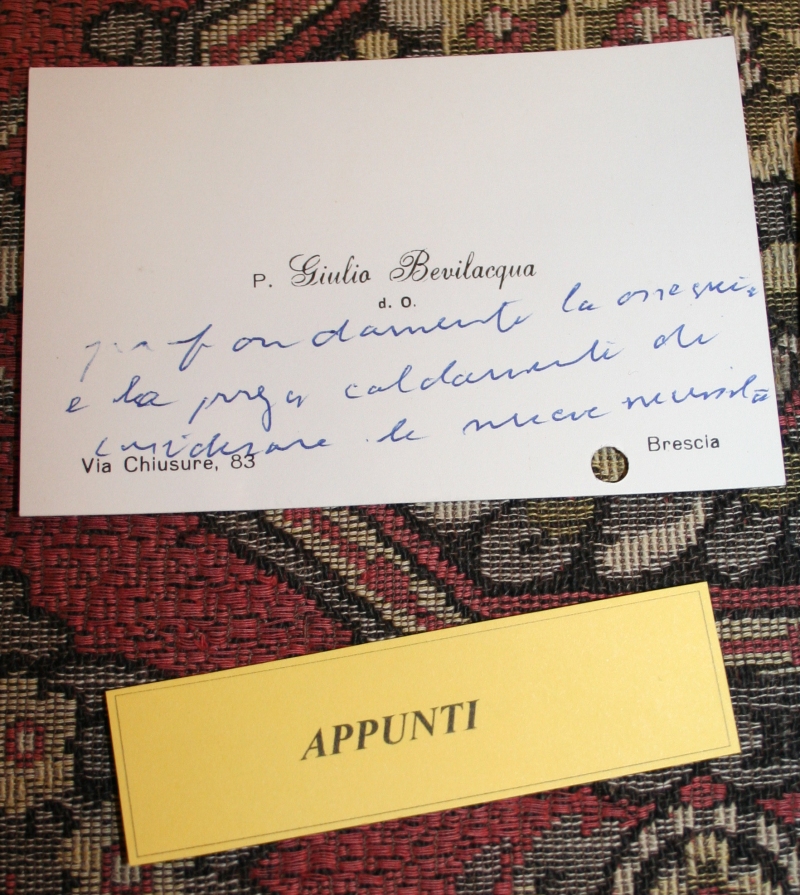 P. Giulio Bevilacqua
d. O.
profondamente la ossequia
e la prega caldamente di
considerare le nuove necessità
Via Chiusure, 83
Brescia
APPUNTI